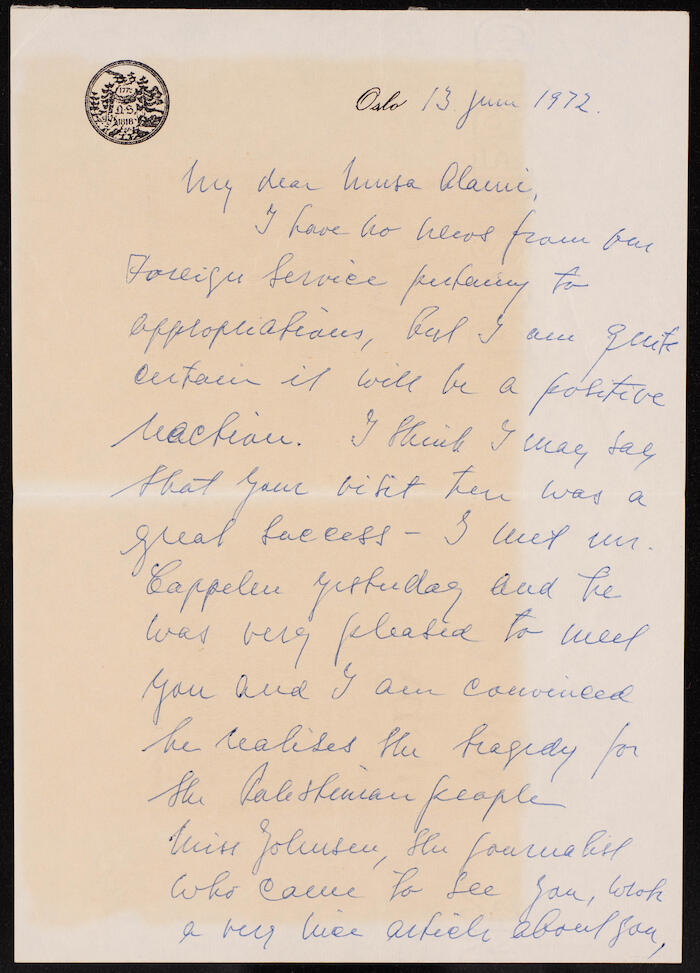 1772
D.S.
1818
Oslo 13. juni 1972.
My dear Musa Alami,
I have no news from our
Foreign Service pertaining to
appropriations, but I am quite
certain it will be a positive
reaction. I think I may say
that your visit here was a
great success – I met mr.
Cappelen yesterday and he
was very pleased to meet
you and I am convinced
he realises the tragedy for
the Palestinian people
Miss Johnsen, the journalist
who came to see you, wrote
a very nice article about you,